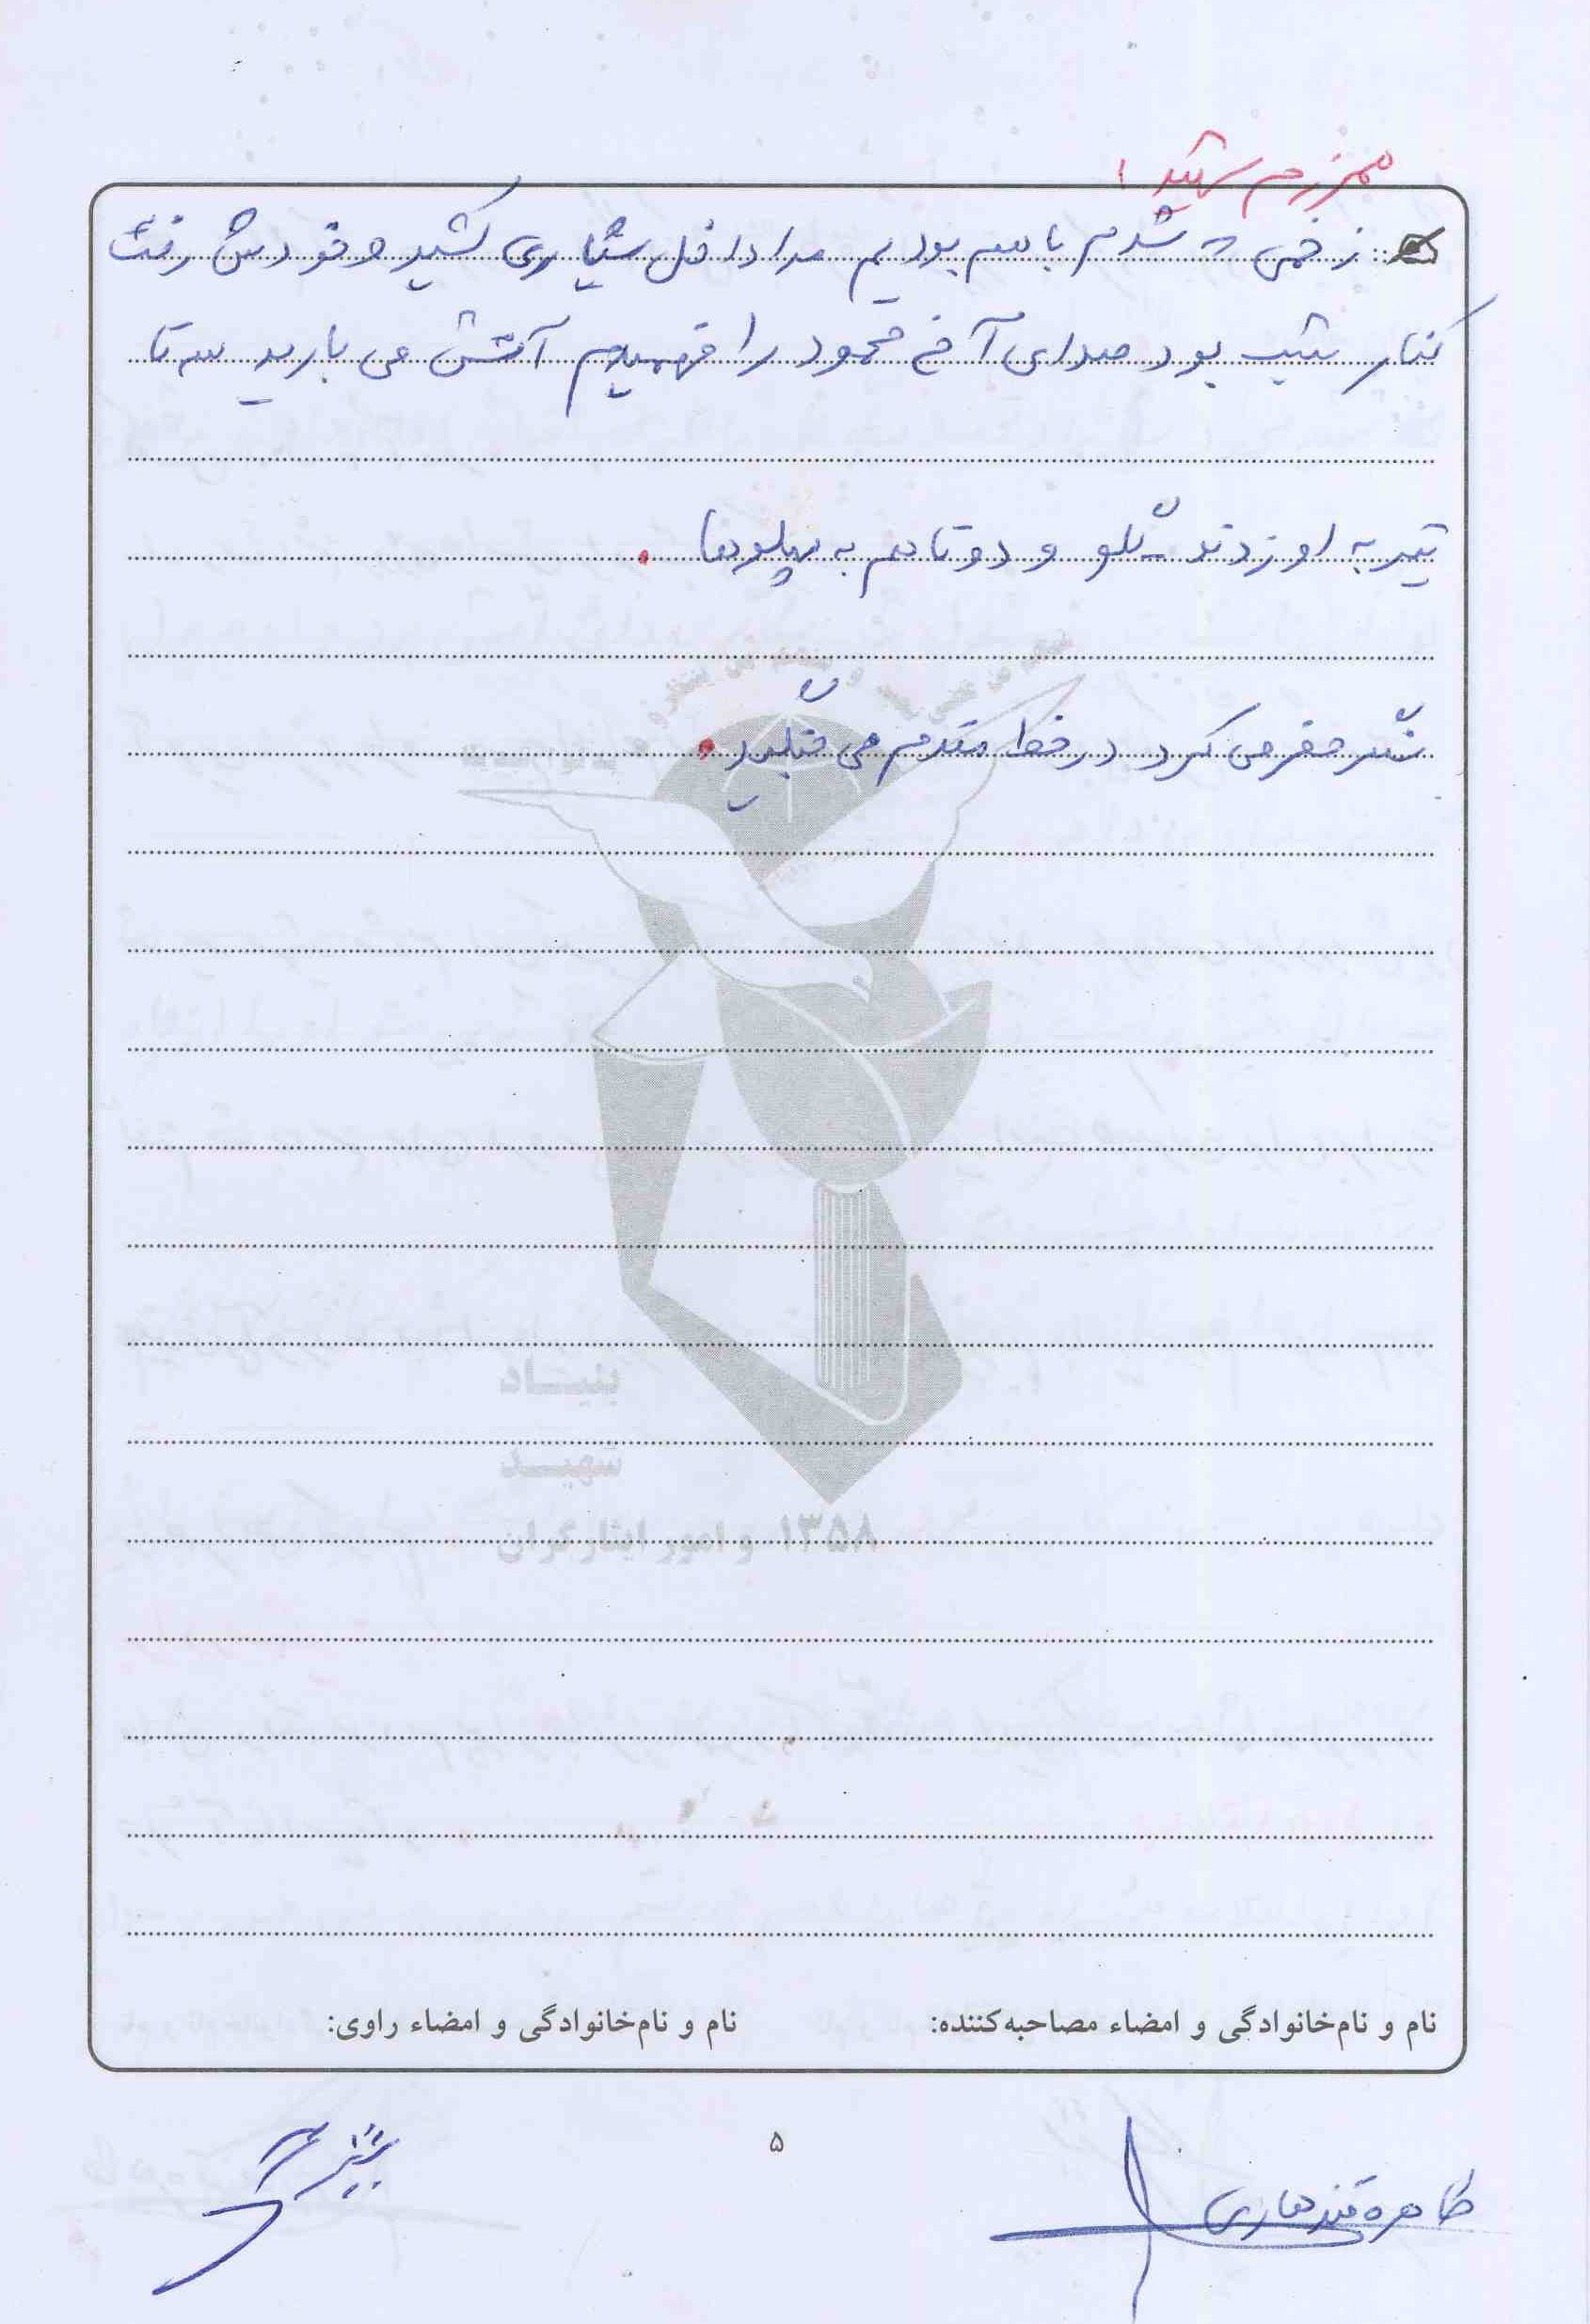 همرزم شهید ۱
زخمی شدم با هم بودیم مرا داخل شیاری کشید و خودش رفت
کنار شیب بود صدای آخ محمود را فهمیدم آتش می بارید سه تا
تیر به او زدند و دو تا هم به پهلوها .
سنگر حفر می کرد در خط مقدم می جنگید .
بنیاد
شهید
و امور ایثارگران ۱۳۵۸
نام و نام‌خانوادگی و امضاء مصاحبه‌کننده: نام و نام‌خانوادگی و امضاء راوی:
۵
طاهره قندهاری